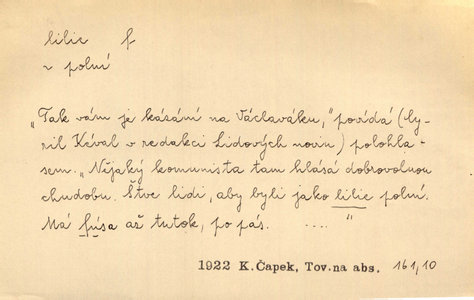 lilie f
~ polní
„Tak vám je kásání na Václaváku,“ povídá (Cy-
ril Kéval v redakci Lidových novin) polohla-
sem. „Nějaký komunista tam hlásá dobrovolnou
chudobu. Štve lidi, aby byli jako lilie polní.
Má fúsa až tutok, po pás. .... “
1922 K.Čapek, Tov.na abs. 161,10